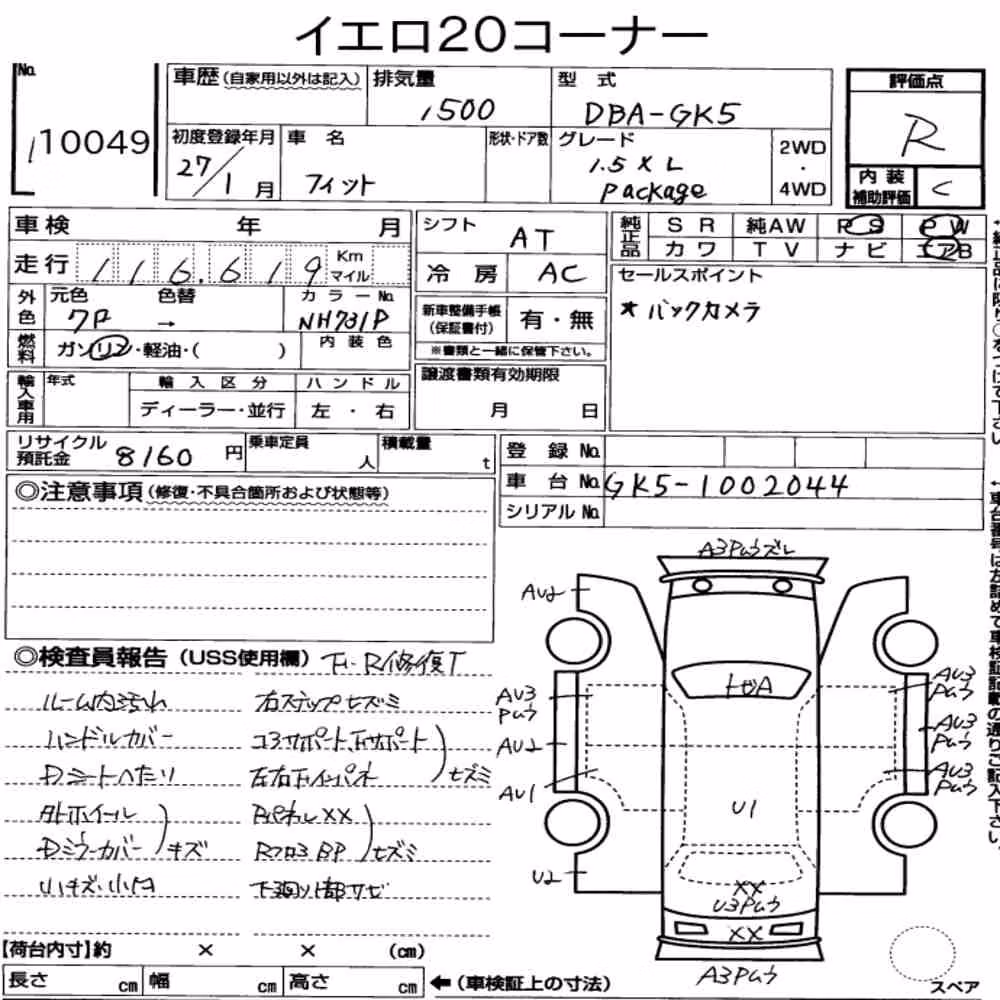 イエロ20コーナー
No.
110049
車歴(自家用以外は記入)
排気量
1500
型 式
DBA-GK5
評価点
R
初度登録年月
27/1月
車 名
フィット
形状・ドア数
グレード
1.5 X L
package
2WD
・
4WD
内 装
補助評価
C
車 検 年 月
走 行 116.619 Km
マイル
シフト
AT
冷 房 AC
純正品
S R 純AW P S P W
カ ワ T V ナ ビ エアB
セールスポイント
* バックカメラ
外色
元色 色替 カ ラ ー No.
7P → NH731P
燃料
ガソリン・軽油・( )
内 装 色
新車整備手帳
(保証書付)
有・無
※書類と一緒に保管下さい。
輸入車用
年式
輸 入 区 分
ディーラー・並行
ハ ン ド ル
左 ・ 右
譲渡書類有効期限
月 日
リサイクル
預託金 8160 円
乗車定員
人
積載量
t
登 録 No.
車 台 No. GK5-1002044
シリアル No.
◎注意事項(修復・不具合箇所および状態等)
◎検査員報告(USS使用欄)
ルーム内汚れ
ハンドルカバー
Dシートへたり
外ホイール
Dミラーカバー キズ
小キズ、小凹
右ステップセズミ
コアサポート、下サポート
左右下インパネ セズミ
Rパネル××
Rフロア BP セズミ
下廻り一部サビ
A3Pムラズレ
AU2
AU3
Pムラ
AU2
AU1
U2
U1
AU3
Pムラ
AU3
Pムラ
AU3
Pムラ
××
U3Pムラ
××
A3Pムラ
【荷台内寸】約 × × (cm)
長さ cm 幅 cm 高さ cm
←(車検証上の寸法)
スペア
↑純正品に限り○をつけて下さい
↑車台番号は左詰めで車検証記載の通りご記入下さい。